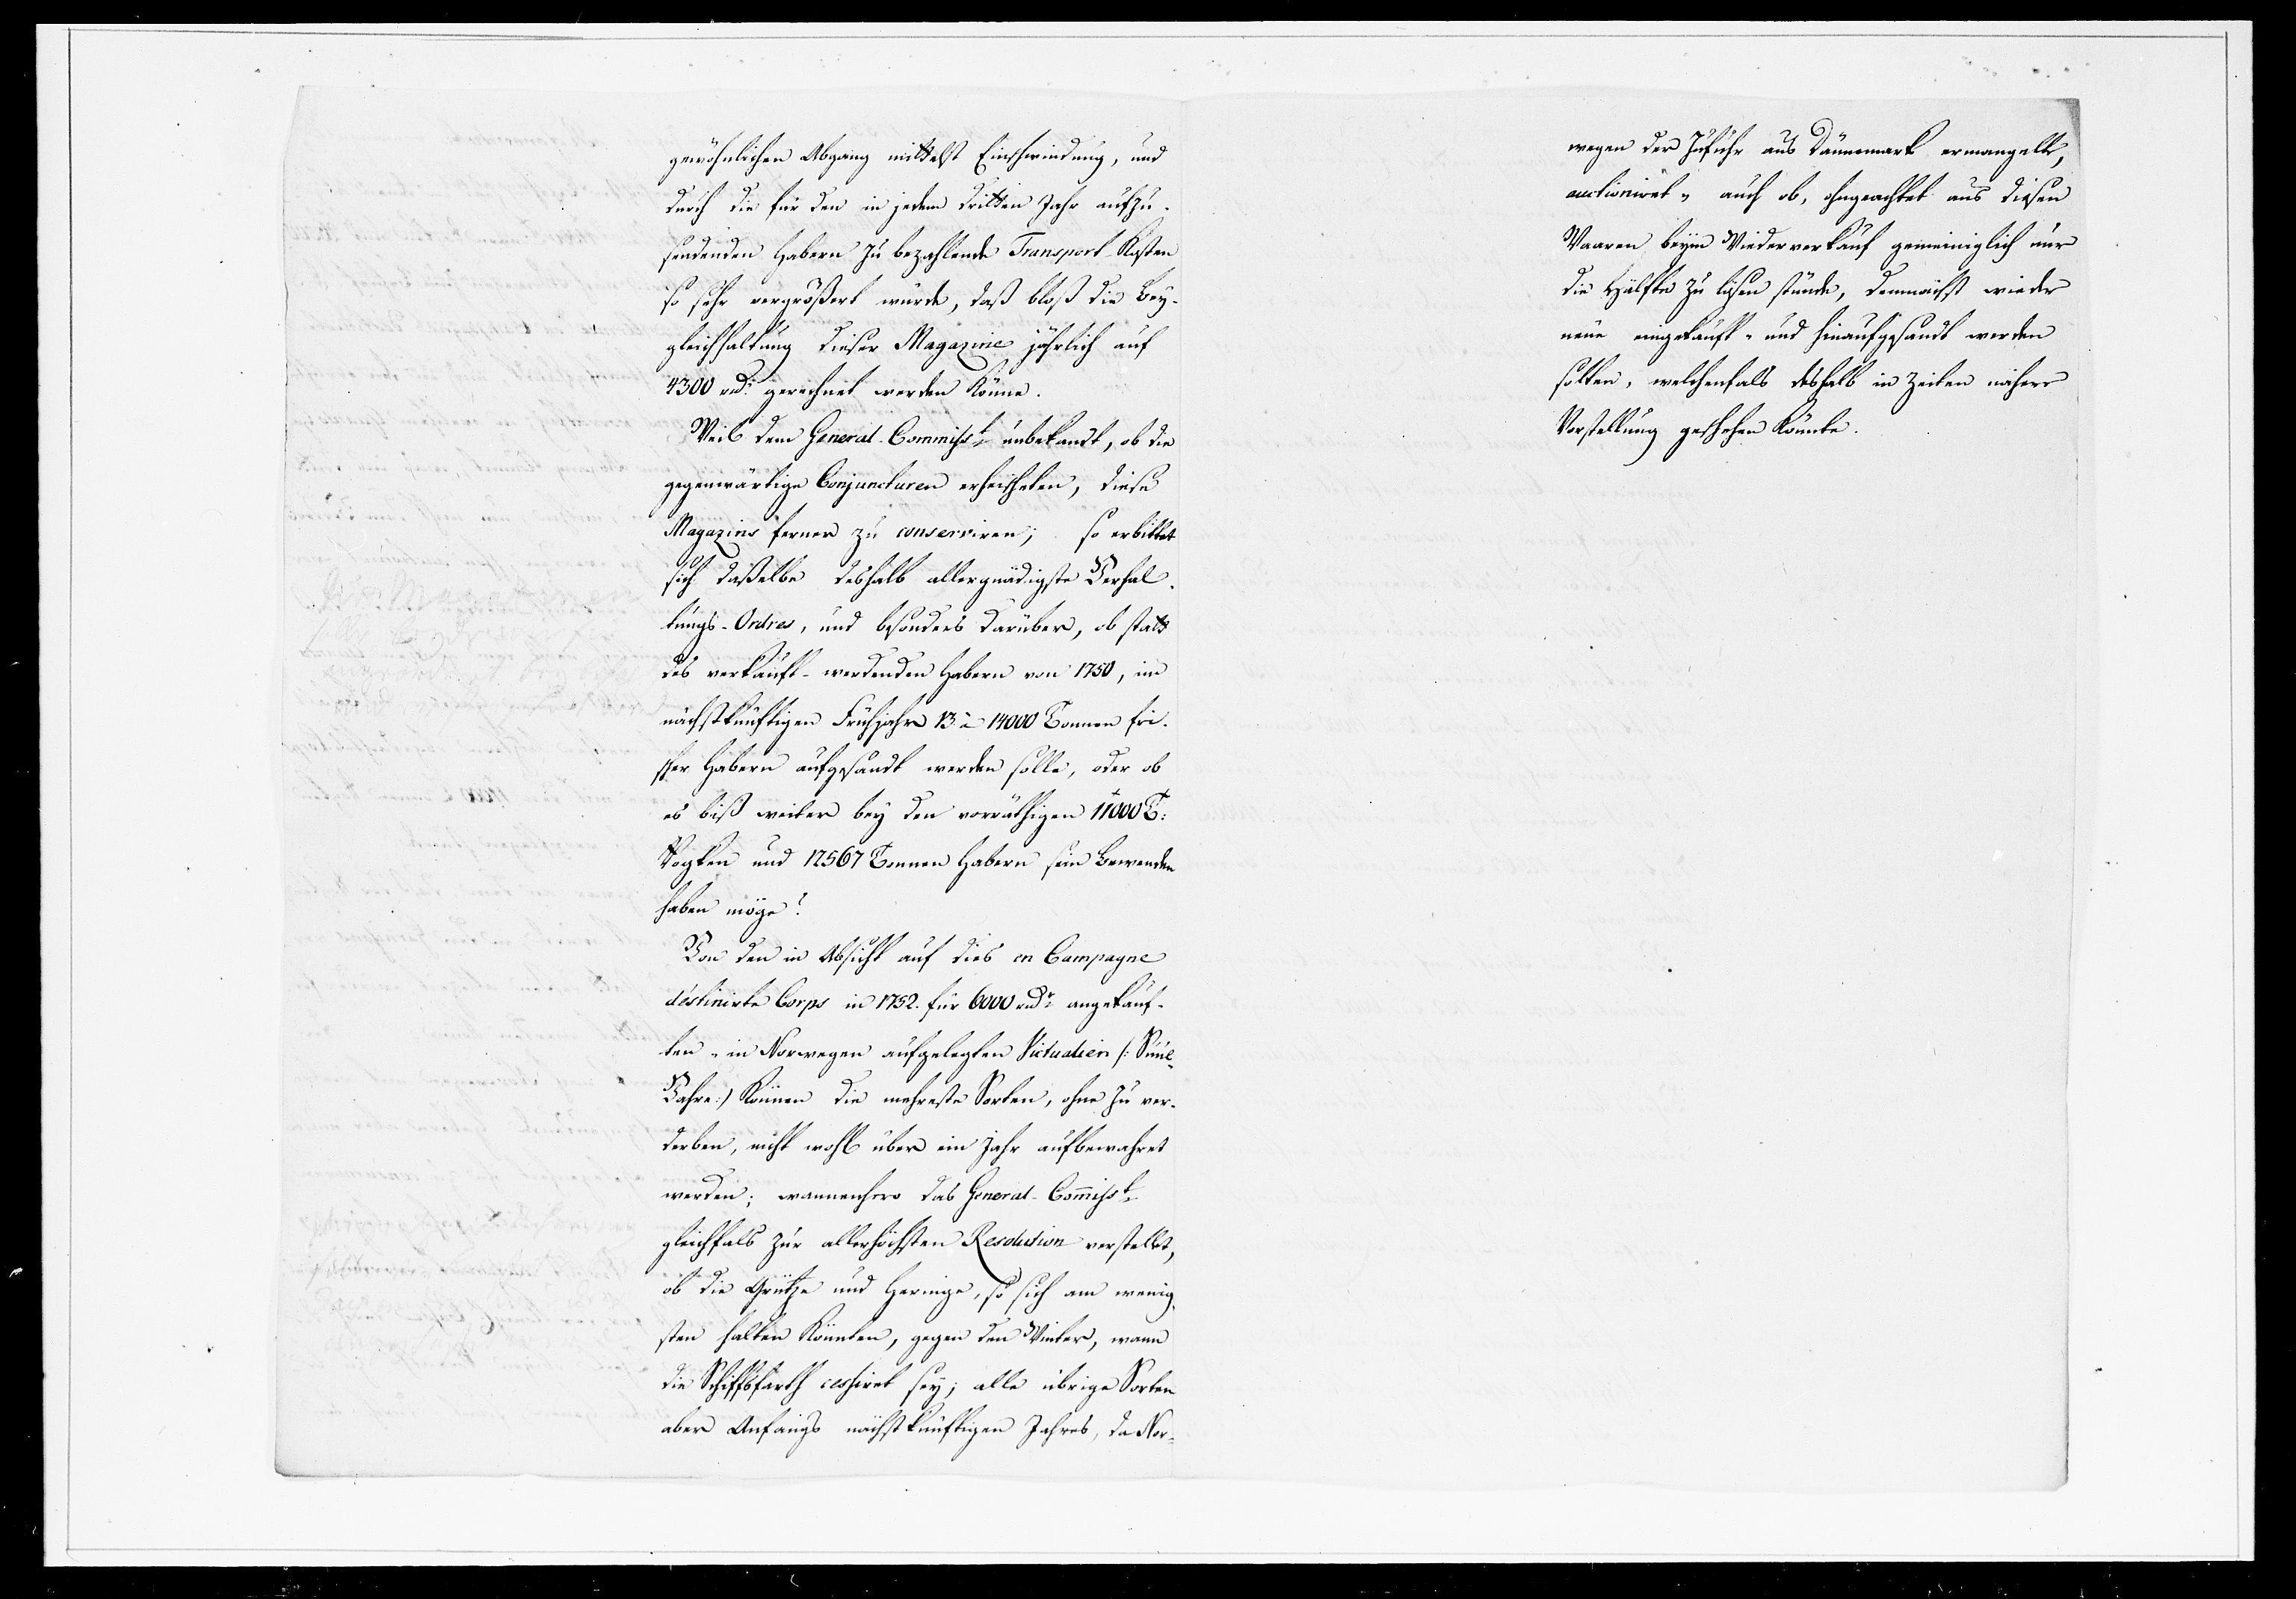 gewöhnlichen Abgang mittelst Einschwindung, und
durch die für den in jedem dritten Jahr aufzu-
sendenden Habern zu bezahlende Transport-Kosten
so sehr vergrößert würde, daß bloß die Bey-
gleichhaltung dieser Magazine jährlich auf
4300 rdr. gerechnet werden könne.
Weil dem General-Commisst. unbekandt, ob die
gegenwärtige Conjuncturen erheischeten, diese
Magazins ferner zu conserviren; so erbittet
sich daßelbe deshalb allergnädigste Verhal-
tungs-Ordres, und besonders darüber, ob statt
des verkauft-werdenden Habern von 1750, im
nächstkünftigen Frühjahr 13 à 14000 Tonnen fri-
scher Habern aufgesandt werden solle, oder ob
es biß weiter bey den vorräthigen 11000 T:
Rogken und 12567 Tonnen Habern sein Bewenden
haben möge?
Von den in Absicht auf dies en Campagne
destinirte Corps in 1752. für 6000 rdr. angekauf-
ten - in Norwegen aufgelegten Victualien /: Suul-
Vahre :/ können die mehreste Sorten, ohne zu ver-
derben, nicht wohl über ein Jahr aufbewahret
werden; wannenhero das General-Com̄isst.
gleichfals zur allerhöchsten Resolution verstellet,
ob die Grütze und Heringe, so sich am wenig-
sten halten könnten, gegen den Winter, wann
die Schiffsfarth cessiret sey; alle übrige Sorten
aber Anfangs nächstkünftigen Jahres, da Nor-
wegen der Zufuhr aus Dännemark ermangelte,
auctioniret - auch ob, ohngeachtet aus diesen
Waaren beym Wiederverkauf gemeiniglich nur
die Hälfte zu lösen stünde, demnächst wieder
neue eingekauft - und hinaufgesandt werden
solten, welchenfals deshalb in Zeiten nähere
Vorstellung geschehen könnte.